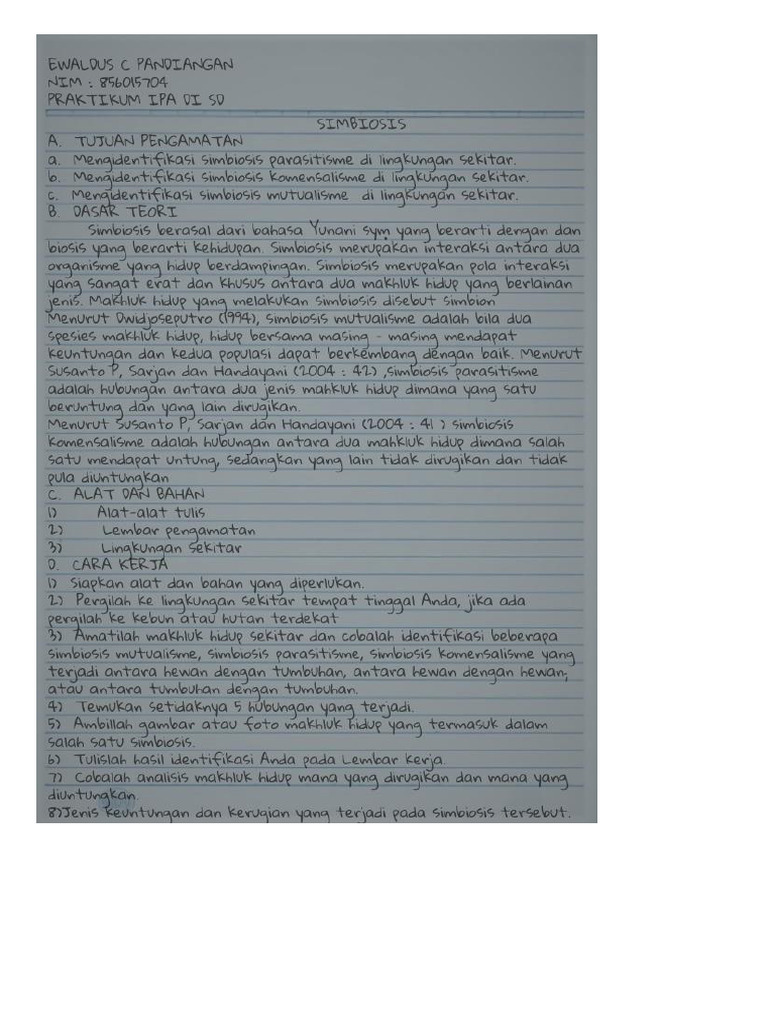 EWALDUS C PANDIANGAN
NIM : 856015704
PRAKTIKUM IPA DI SD
SIMBIOSIS
A. TUJUAN PENGAMATAN
a. Mengidentifikasi simbiosis parasitisme di lingkungan sekitar.
b. Mengidentifikasi simbiosis komensalisme di lingkungan sekitar.
c. Mengidentifikasi simbiosis mutualisme di lingkungan sekitar.
B. DASAR TEORI
Simbiosis berasal dari bahasa Yunani sym yang berarti dengan dan
biosis yang berarti kehidupan. Simbiosis merupakan interaksi antara dua
organisme yang hidup berdampingan. Simbiosis merupakan pola interaksi
yang sangat erat dan khusus antara dua makhluk hidup yang berlainan
jenis. Makhluk hidup yang melakukan simbiosis disebut simbion
Menurut Dwidjoseputro (1994), simbiosis mutualisme adalah bila dua
spesies makhluk hidup, hidup bersama masing - masing mendapat
keuntungan dan kedua populasi dapat berkembang dengan baik. Menurut
Susanto P, Sarjan dan Handayani (2004 : 42) ,simbiosis parasitisme
adalah hubungan antara dua jenis mahkluk hidup dimana yang satu
beruntung dan yang lain dirugikan.
Menurut Susanto P, Sarjan dan Handayani (2004 : 41 ) simbiosis
komensalisme adalah hubungan antara dua mahkluk hidup dimana salah
satu mendapat untung, sedangkan yang lain tidak dirugikan dan tidak
pula diuntungkan
C. ALAT DAN BAHAN
1) Alat-alat tulis
2) Lembar pengamatan
3) Lingkungan sekitar
D. CARA KERJA
1) Siapkan alat dan bahan yang diperlukan.
2) Pergilah ke lingkungan sekitar tempat tinggal Anda, jika ada
pergilah ke kebun atau hutan terdekat
3) Amatilah makhluk hidup sekitar dan cobalah identifikasi beberapa
simbiosis mutualisme, simbiosis parasitisme, simbiosis komensalisme yang
terjadi antara hewan dengan tumbuhan, antara hewan dengan hewan,
atau antara tumbuhan dengan tumbuhan.
4) Temukan setidaknya 5 hubungan yang terjadi.
5) Ambillah gambar atau foto makhluk hidup yang termasuk dalam
salah satu simbiosis.
6) Tulislah hasil identifikasi Anda pada Lembar kerja.
7) Cobalah analisis makhluk hidup mana yang dirugikan dan mana yang
diuntungkan.
8)Jenis keuntungan dan kerugian yang terjadi pada simbiosis tersebut.